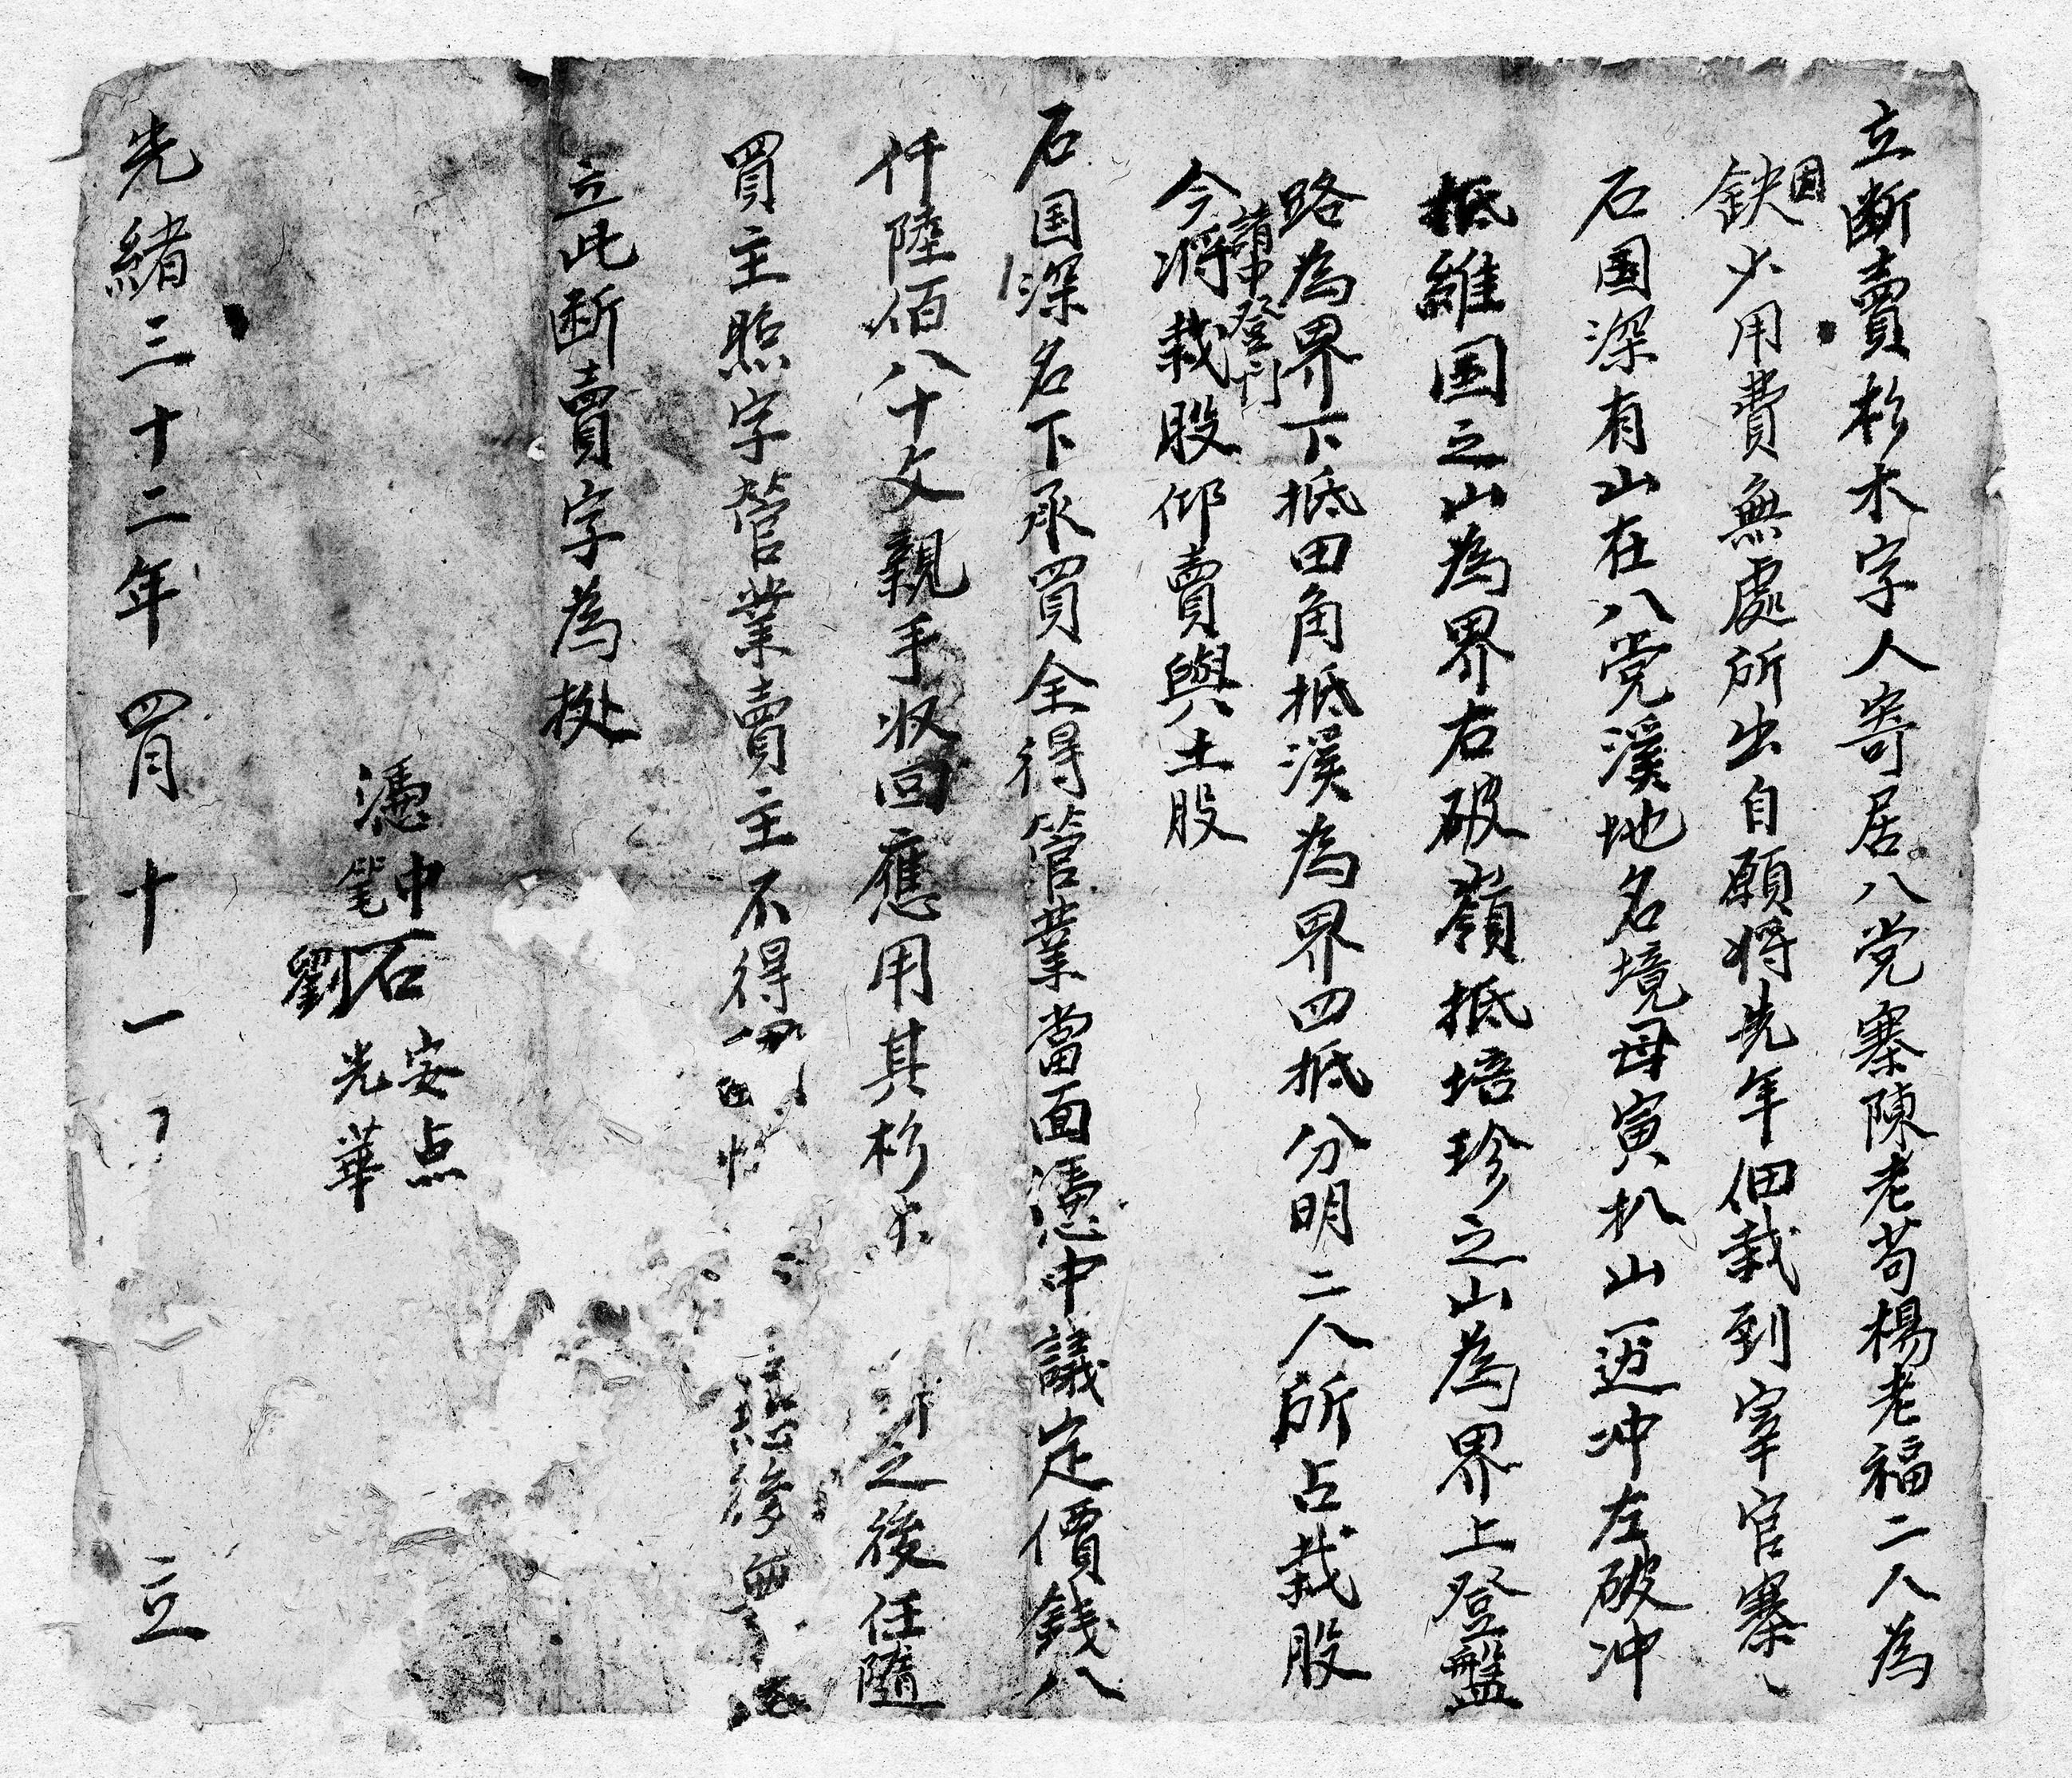 立断賣杉木字人寄居八党寨陳老苟楊老福二人為
因
鈌少用費無處所出自願將先年佃栽到宰官寨
石国深有山在八党溪地名境母寅扒山一边冲左破冲
抵維国之山為界右破嶺抵培珍之山為界上登盤
路為界下抵田角抵溪為界四抵分明二人所占栽股
請中登門
今將栽股仰賣與土股
石国深名下承買全得管業當面憑中議定價錢八
仟陸佰八十文親手収回應用其杉木之後任隨
買主照字管業賣主不得後無
立此断賣字為拠
憑中石安点
笔劉光華
光緒三十二年四月十一立